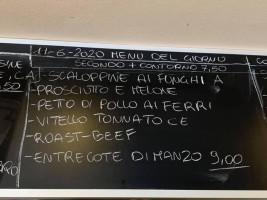 11-6-2020 MENU DEL GIORNO
SECONDO + CONTORNO 7,50
-SCALOPPINE AI FUNGHI A
-PROSCIUTTO E MELONE
-PETTO DI POLLO AI FERRI
-VITELLO TONNATO C E
-ROAST-BEEF
-ENTRECOTE DI MANZO 9,00